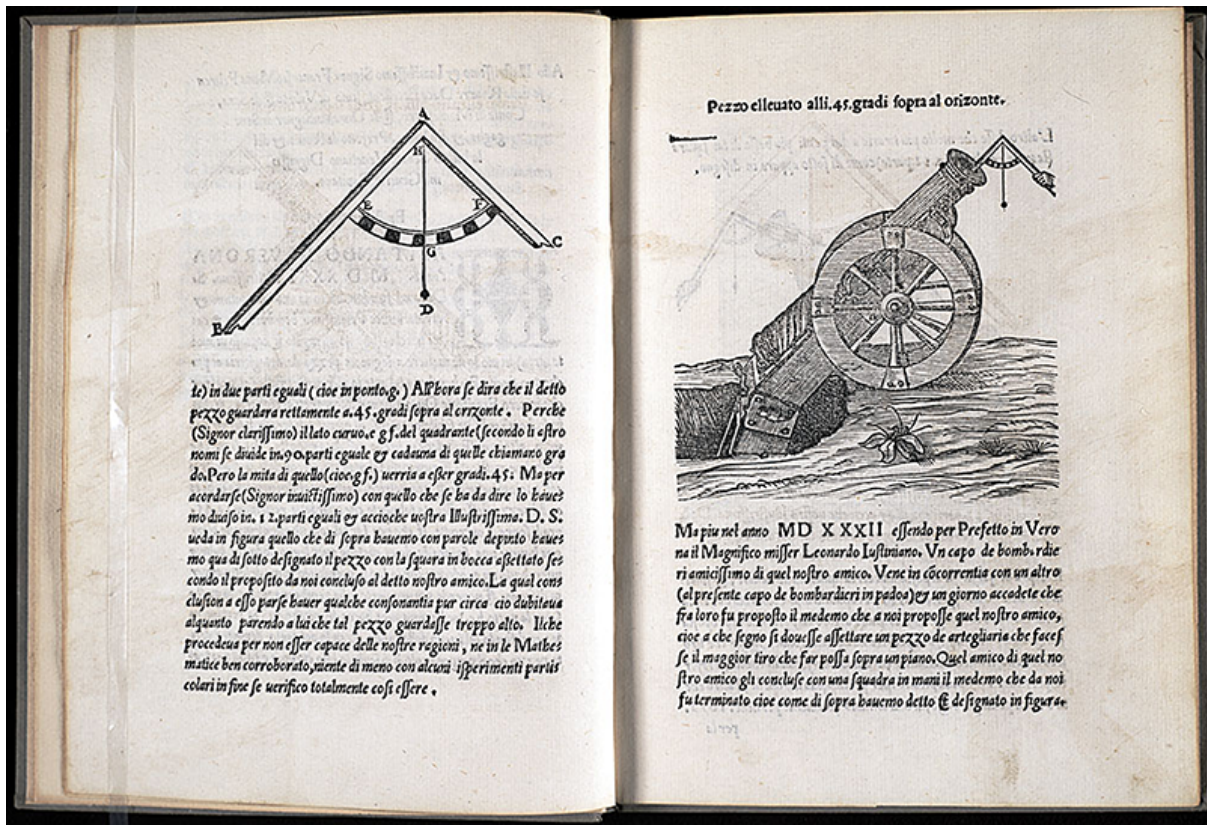 A
H
E
F
G
C
B
D
te) in due parti eguali (cioe in ponto.g.) All'hora se dira che il detto
pezzo guardara rettamente a.45.gradi sopra al orizonte. Perche
(Signor clarissimo) il lato curuo.e g f.del quadrante (secondo li astro
nomi se diuide in.90.parti eguale & cadauna di quelle chiamano gra
do.Pero la mita di quello (cioe.g f.) uerria a esser gradi.45. Ma per
acordarse (Signor inuictissimo) con quello che se ha da dire lo haue=
mo diuiso in.12.parti eguali & accioche uostra Illustrissima. D. S.
ueda in figura quello che di sopra hauemo con parole depinto haue=
mo qua di sotto designato il pezzo con la squara in bocca assettato se=
condo il proposito da noi concluso al detto nostro amico.La qual con=
clusion a esso parse hauer qualche consonantia pur circa cio dubitaua
alquanto parendo a lui che tal pezzo guardasse troppo alto. Ilche
procedeua per non esser capace delle nostre ragioni, ne in le Mathe=
matice ben corroborato, niente di meno con alcuni isperimenti parti=
colari in fine se uerifico totalmente cosi essere.
Pezzo elleuato alli.45.gradi sopra al orizonte.
Ma piu nel anno MD XXXII essendo per Prefetto in Vero
na il Magnifico misser Leonardo Iustiniano. Vn capo de bombardie
ri amicissimo di quel nostro amico. Vene in cõcorrentia con un altro
(al presente capo de bombardieri in padoa) & un giorno accadete che
fra loro fu proposto il medemo che a noi propose quel nostro amico,
cioe a che segno si douesse assettare un pezzo de artegliaria che faces
se il maggior tiro che far possa sopra un piano. Quel amico di quel no
stro amico gli concluse con una squadra in mani il medemo che da noi
fu terminato cioe come di sopra hauemo detto & designato in figura.